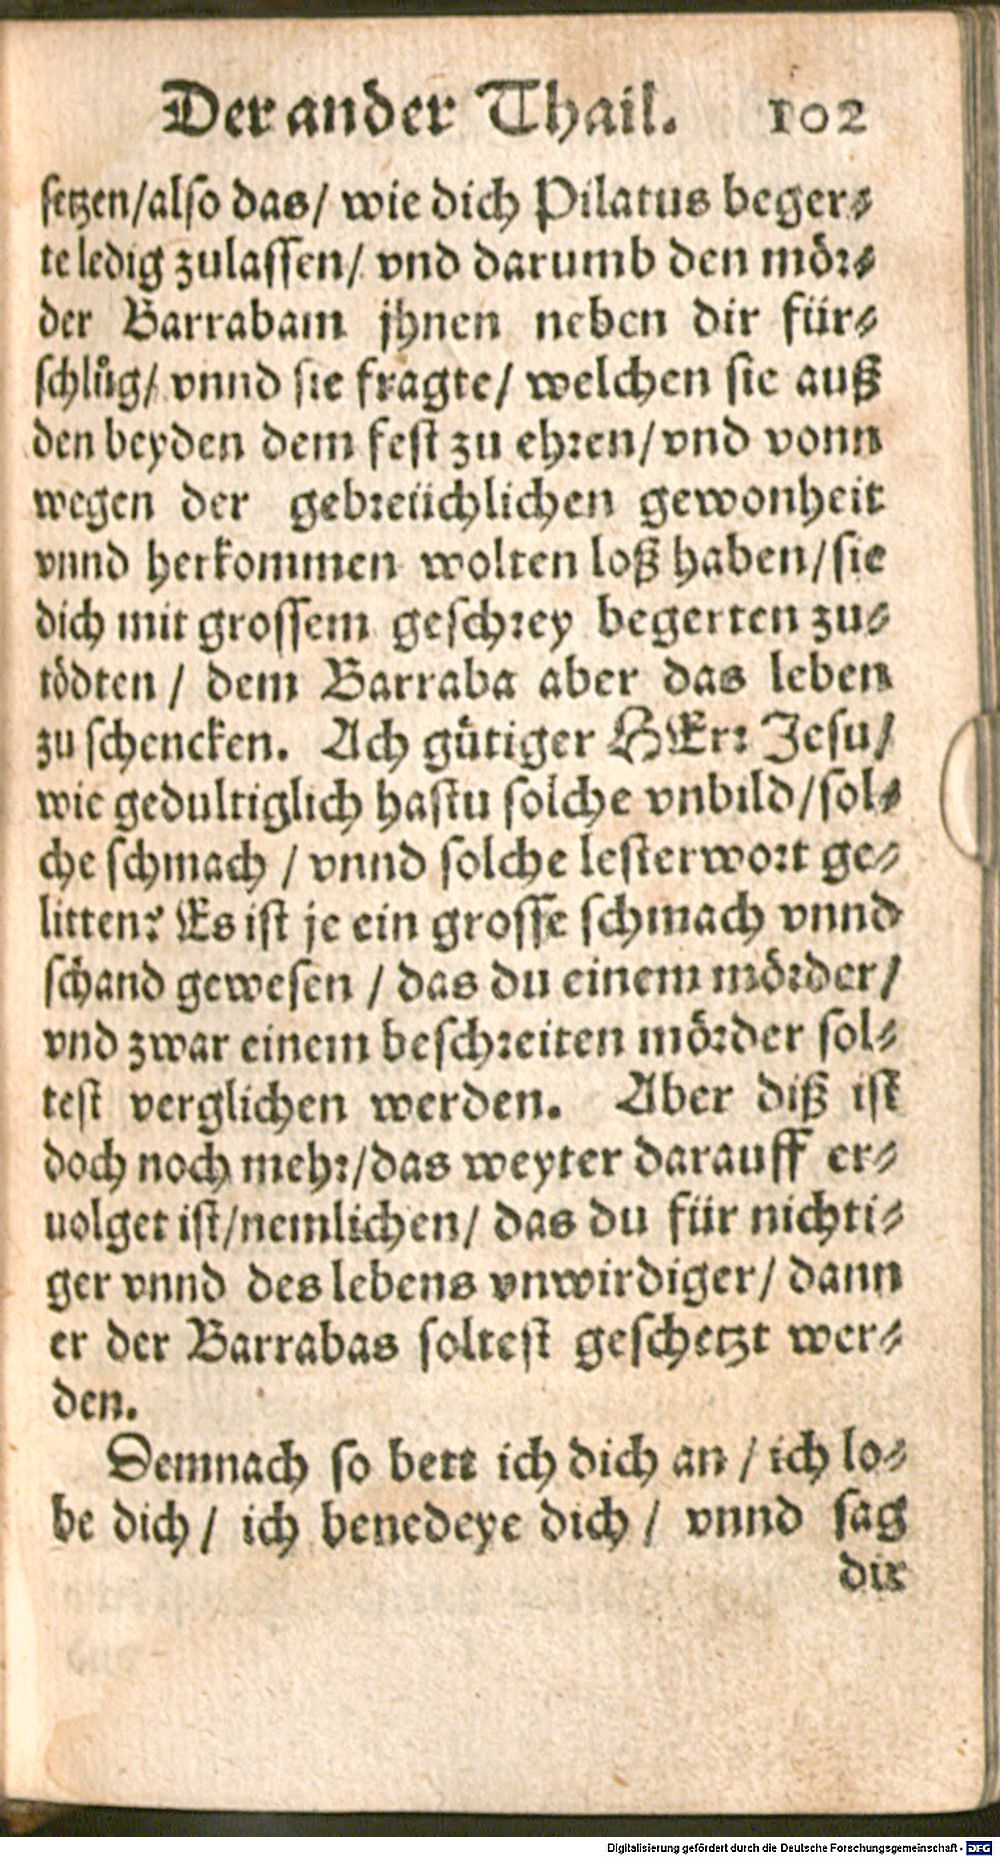 Der ander Thail. 102
setzen/also das/ wie dich Pilatus beger⸗
te ledig zulassen/ vnd darumb den mör⸗
der Barrabam jhnen neben dir für⸗
schlůg/ vnnd sie fragte/ welchen sie auß
den beyden dem fest zu ehren/vnd vonn
wegen der gebreüchlichen gewonheit
vnnd herkommen wolten loß haben/sie
dich mit grossem geschrey begerten zu⸗
tödten / dem Barraba aber das leben
zu schencken. Ach gütiger HErr Jesu/
wie gedultiglich hastu solche vnbild/sol⸗
che schmach / vnnd solche lesterwort ge⸗
litten? Es ist je ein grosse schmach vnnd
schand gewesen / das du einem mörder/
vnd zwar einem beschreiten mörder sol⸗
test verglichen werden. Aber diß ist
doch noch mehr/das weyter darauff er⸗
uolget ist/nemlichen/ das du für nichti⸗
ger vnnd des lebens vnwirdiger/ dann
er der Barrabas soltest geschetzt wer⸗
den.
Demnach so bett ich dich an / ich lo⸗
be dich/ ich benedeye dich / vnnd sag
dir
Digitalisierung gefördert durch die Deutsche Forschungsgemeinschaft - DFG